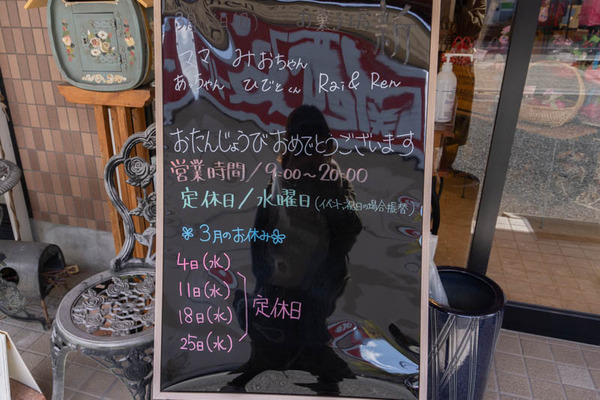 ママ みおちゃん
あっちゃん ひでとくん Rai & Ren
おたんじょうびおめでとうございます
営業時間/9:00〜20:00
定休日/水曜日(イベント、祝日の場合振替)
3月のお休み
4日(水)
11日(水)
18日(水)
25日(水)
定休日